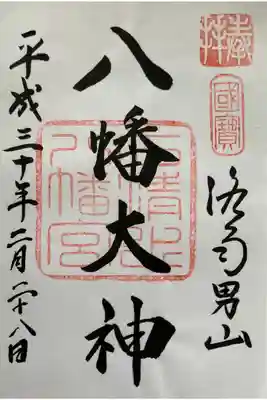 奉拝
國寶
洛南男山
八幡大神
石清水八幡宮
平成三十年二月二十八日